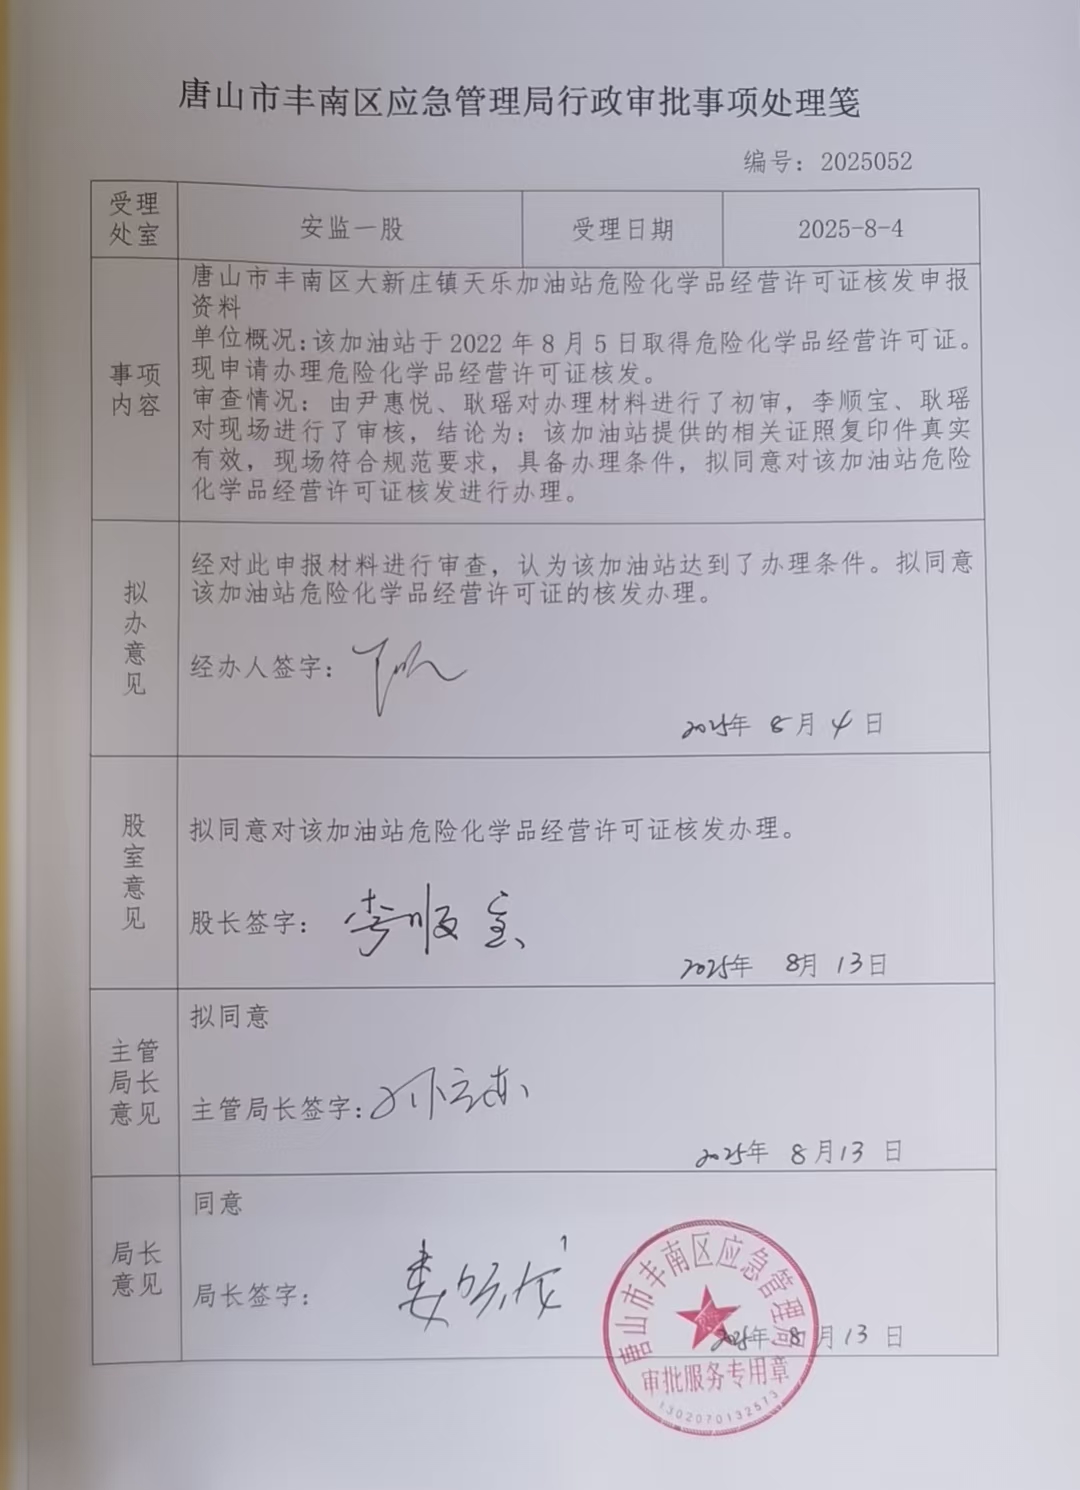 唐山市丰南区应急管理局行政审批事项处理笺
编号：2025052
受理
处室
安监一股
受理日期
2025-8-4
事项
内容
唐山市丰南区大新庄镇天乐加油站危险化学品经营许可证核发申报
资料
单位概况：该加油站于 2022 年 8 月 5 日取得危险化学品经营许可证。
现申请办理危险化学品经营许可证核发。
审查情况：由尹惠悦、耿瑶对办理材料进行了初审，李顺宝、耿瑶
对现场进行了审核，结论为：该加油站提供的相关证照复印件真实
有效，现场符合规范要求，具备办理条件，拟同意对该加油站危险
化学品经营许可证核发进行办理。
拟
办
意
见
经对此申报材料进行审查，认为该加油站达到了办理条件。拟同意
该加油站危险化学品经营许可证的核发办理。
经办人签字：
2025年 8月 4日
股
室
意
见
拟同意对该加油站危险化学品经营许可证核发办理。
股长签字：李顺宝
2025年 8月 13日
主管
局长
意见
拟同意
主管局长签字：
2025年 8月13日
局长
意见
同意
局长签字：
2025年 8月13日
唐山市丰南区应急管理局
审批服务专用章
1302070132573